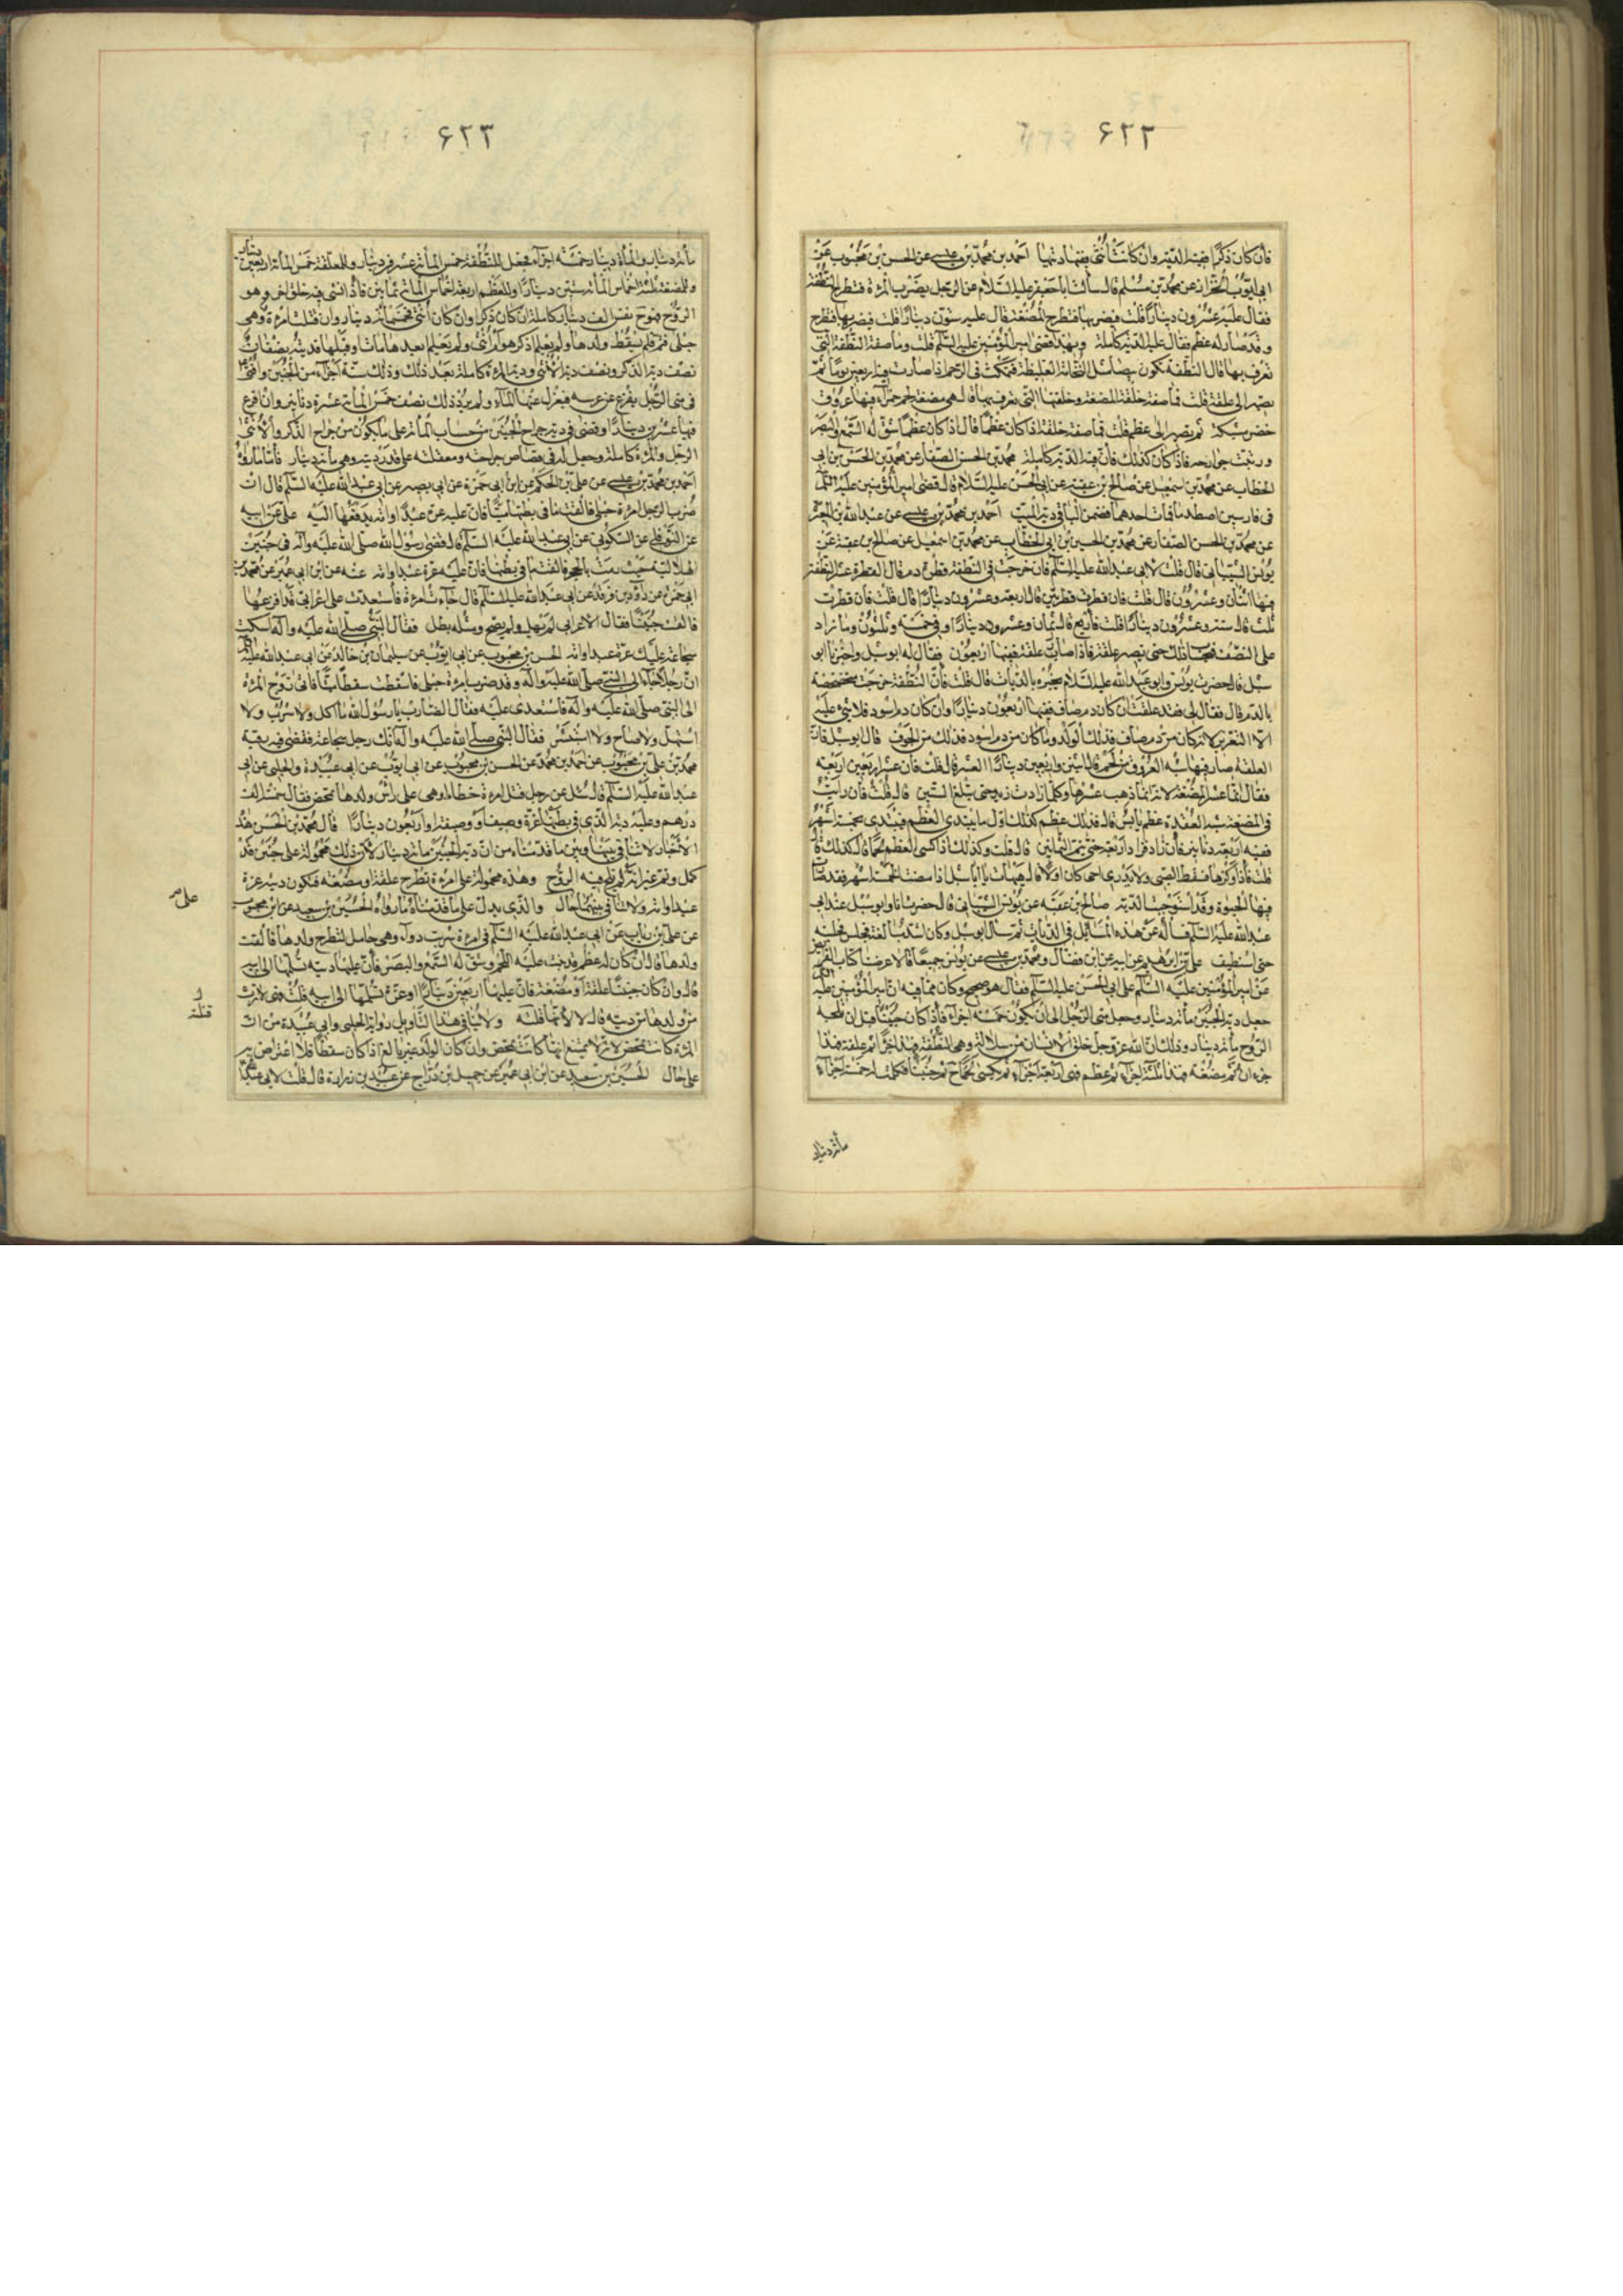 ۶۲۲
فان كان ذكرا ففيه الدية وان كانت انثى ففيها ديتها احمد بن محمد بن عيسى عن الحسن بن محبوب عن
ابى ايوب الخزاز عن محمد بن مسلم قال سألت ابا جعفر عليه السلام عن الرجل يضرب المرءة فتطرح النطفة
فقال عليه عشرون دينارا قلت فيضربها فتطرح المضغة قال عليه ستون دينارا قلت فيضربها فتطرح
وقد صار له عظم فقال عليه الدية كاملة وبهذا قضى امير المؤمنين عليه السلم قلت وما صفة النطفة التى
تعرف بها قال النطفة تكون بيضاء مثل النخامة الغليظة فتمكث فى الرحم اذا صارت فيه اربعين يوما ثم
تصير الى علقة قلت فما صفة خلقة المضغة وخلقتها التى تعرف بها قال هى مضغة لحم حمراء فيها عروق
خضر مشبكة ثم تصير الى عظم قلت فما صفة خلقته اذا كان عظما قال اذا كان عظما شق له السمع والبصر
ورتبت جوارحه فاذا كان كذلك فان فيه الدية كاملة محمد بن الحسن الصفار عن محمد بن الحسين بن ابى
الخطاب عن محمد بن اسمعيل عن صالح بن عقبة عن ابى الحسن عليه السلام قال قضى امير المؤمنين عليه السلم
فى فارسين اصطدما فمات احدهما فضمن الباقى دية الميت احمد بن محمد بن عيسى عن عبد الله بن
عن محمد بن الحسن الصفار عن محمد بن الحسين بن ابى الخطاب عن محمد بن اسمعيل عن صالح بن عقبة عن
يونس الشيبانى قال قلت لابى عبد الله عليه السلم فان خرجت فى النطفة قطرة دم قال القطرة عشر النطفة
فيها اثنان وعشرون قال قلت فان قطرت قطرتين قال اربعة وعشرون دينارا قال قلت فان قطرت
ثلث قال ستة وعشرون دينارا قلت فاربع قال ثمان وعشرون دينارا وفى خمسة وثلثون وما زاد
على النصف فبحساب ذلك حتى تصير علقة فاذا صارت علقة ففيها اربعون فقال له ابو شبل واخبرنا ابو
شبل قال حضرت يونس وابو عبد الله عليه السلام يخبره بالديات قال قلت فان النطفة خرجت متخضخضة
بالدم قال فقال لى فقد علقت ان كان دم صاف ففيها اربعون دينارا وان كان دم اسود فلا شئ عليه
الا التعزير لانه ما كان من دم صاف فذلك للولد وما كان من دم اسود فذلك من الجوف قال ابو شبل فان
العلقة صار فيها شبه العروق من لحم قال اثنين واربعين دينارا العشر قال قلت فان عشر اربعين اربعة
فقال انما عشر المضغة لانه انما ذهب عشرها وكلما زادت زيد حتى تبلغ الستين قال قلت فان رايت
فى المضغة شبه العقدة عظم يابس قال فذلك عظم كذلك اول ما يبتدى العظم فيبتدى بخمسة اشهر
ففيه اربعة دنانير فان زاد فزد اربعة حتى تتم الثمانين قال قلت وكذلك اذا كسى العظم لحما قال كذلك قال
قلت فاذا وكزها فسقط الصبى ولا يدرى احى كان او لا قال هيهات يا ابا شبل اذا مضت الخمسة اشهر فقد صارت
فيها الحيوة وقد استوجب الدية صالح بن عقبة عن يونس الشيبانى قال حضرت انا وابو شبل عند ابى
عبد الله عليه السلم فسأله عن هذه المسائل فى الديات ثم سأل ابو شبل وكان اشد مبالغة فخليته
حتى استنظف على بن ابرهيم عن ابيه عن ابن فضال ومحمد بن عيسى عن يونس جميعا قالا عرضنا كتاب الفرايض
عن امير المؤمنين عليه السلم على ابى الحسن عليه السلم فقال هو صحيح وكان مما فيه ان امير المؤمنين عليه السلم
جعل دية الجنين مأئة دينار وجعل منى الرجل الى ان يكون جنينا خمسة اجزاء فاذا كان جنينا قبل ان تلجه
الروح مأئة دينار وذلك ان الله عز وجل خلق الانسان من سلالة وهى النطفة فهذا جزء ثم علقة فهذا
جزءان ثم مضغة فهذا ثلثة اجزاء ثم عظم فهى اربعة اجزاء ثم يكسى لحما ح تم جنينا فكملت له خمسة اجزاء
مأئة دينار
۶۲۳
مأئة دينار والمأئة دينار خمسة اجزاء فجعل للنطفة خمس المأئة عشرين دينار وللعلقة خمس المأئة اربعين دينار
وللمضغة ثلثة اخماس المأئة ستين دينارا وللعظم اربعة اخماس المأئة ثمانين فاذا انشى فيه خلق اخر وهو
الروح فهو ح نفس الف دينار كاملة ان كان ذكرا وان كان انثى فخمسمأئة دينار وان قتلت امرءة وهى
حبلى فتم فلم يسقط ولدها ولم يعلم اذكر هو ام انثى ولم يعلم ابعدها مات او قبلها فديته نصفان
نصف دية الذكر ونصف دية الانثى ودية المرءة كاملة بعد ذلك وذلك ستة اجزاء من الجنين وافتى
فى منى الرجل يفزع عن عرسه فيعزل عنها الماء ولم يرد ذلك نصف خمس المأئة عشرة دنانير وان افرغ
فيها عشرين دينارا وقضى فى دية جراح الجنين من حساب المأئة على ما يكون من جراح الذكر والانثى
الرجل والمرءة كاملة وجعل له فى قصاص جراحته ومعقلته على قدر ديته وهى مأئة دينار فاما ما رواه
احمد بن محمد بن عيسى عن على بن الحكم عن ابن ابى حمزة عن ابى بصير عن ابى عبد الله عليه السلم قال ان
ضرب الرجل امرءة حبلى فالقت ما فى بطنها ميتا فان عليه غرة عبدا او امة يدفعها اليه على عن ابيه
عن النوفلى عن السكونى عن ابى عبد الله عليه السلم قال قضى رسول الله صلى الله عليه وآله فى جنين
الهلالية حيث رميت بالحجر فالقت ما فى بطنها فان عليه غرة عبد او امة عنه عن ابن ابى عمير عن محمد بن
ابى حمزة عن داود بن فرقد عن ابى عبد الله عليه السلم قال جاءت امرءة فاستعدت على اعرابى قد افزعها
فالقت جنينا فقال الاعرابى لم يهل ولم يصح ومثله يطل فقال النبى صلى الله عليه وآله اسكت
سجاعة عليك غرة عبد او امة الحسن بن محبوب عن ابى ايوب عن سليمان بن خالد عن ابى عبد الله عليه السلم
ان رجلا جاء الى النبى صلى الله عليه وآله وقد ضرب امرءة حبلى فاسقطت سقطا ميتا فاتى زوج المرءة
الى النبى صلى الله عليه وآله فاستعدى عليه فقال الضارب يا رسول الله ما اكل ولا شرب ولا
استهل ولا صاح ولا استبشر فقال النبى صلى الله عليه وآله انك رجل سجاعة فقضى فيه رقبة
محمد بن على بن محبوب عن احمد بن محمد عن الحسن بن محبوب عن ابى ايوب عن ابى عبيدة والحلبى عن ابى
عبد الله عليه السلم قال سئل عن رجل قتل امرءة خطاء وهى على راس ولدها تمخض فقال خمسة الف
درهم وعليه دية الذى فى بطنها غرة وصيف او وصيفة او اربعون دينارا قال محمد بن الحسن هذه
الاخبار لا تنافى بينها وبين ما قدمناه من ان دية الجنين مأئة دينار لان ذلك محمولة على جنين قد
كمل وتم غير انه لم تلج فيه الروح وهذه محمولة على امرءة تطرح علقة او مضغة فتكون ديته غرة
عبد او امة ولا تنافى بينهما على حال والذى يدل على ما قدمناه ما رواه الحسين بن سعيد عن ابن محبوب
عن على بن رياب عن ابى عبد الله عليه السلم فى امرءة شربت دواء وهى حامل لتطرح ولدها فالقت
ولدها قال ان كان له عظم قد نبت عليه اللحم وشق له السمع والبصر فان عليها دية تسلمها الى ابيه
قال وان كان جنينا علقة او مضغة فان عليها اربعين دينارا او غرة تسلمها الى ابيه قلت فهى لا ترث
من ولدها من ديته قال لا لانها قتلته ولا ينافى هذا التاويل رواية الحلبى وابى عبيدة من ان
المرءة كانت تمخض لانه لا يمتنع انها كانت تمخض وان كان الولد غير بالغ اذا كان سقطا فلا اعتراض به
على حال الحسين بن سعيد عن ابن ابى عمير عن جميل بن دراج عن عبيد بن زرارة قال قلت لابى عبد الله
على
قتلته